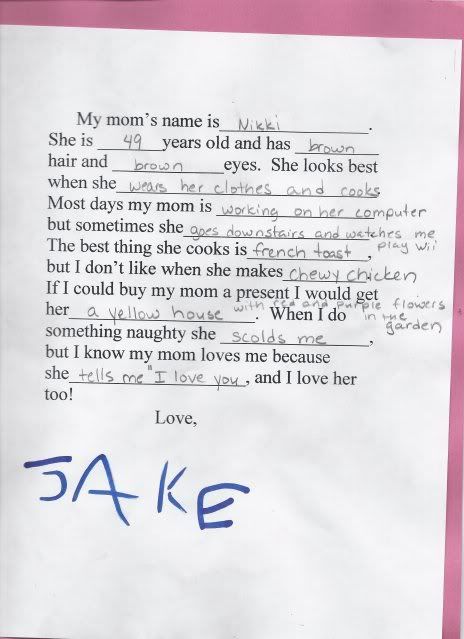 My mom's name is Nikki.
She is 49 years old and has brown
hair and brown eyes. She looks best
when she wears her clothes and cooks
Most days my mom is working on her computer
but sometimes she goes downstairs and watches me
play Wii
The best thing she cooks is french toast,
but I don't like when she makes chewy chicken
If I could buy my mom a present I would get
her a yellow house with red and purple flowers
in the garden. When I do
something naughty she scolds me,
but I know my mom loves me because
she tells me "I love you, and I love her
too!
Love,
JAKE